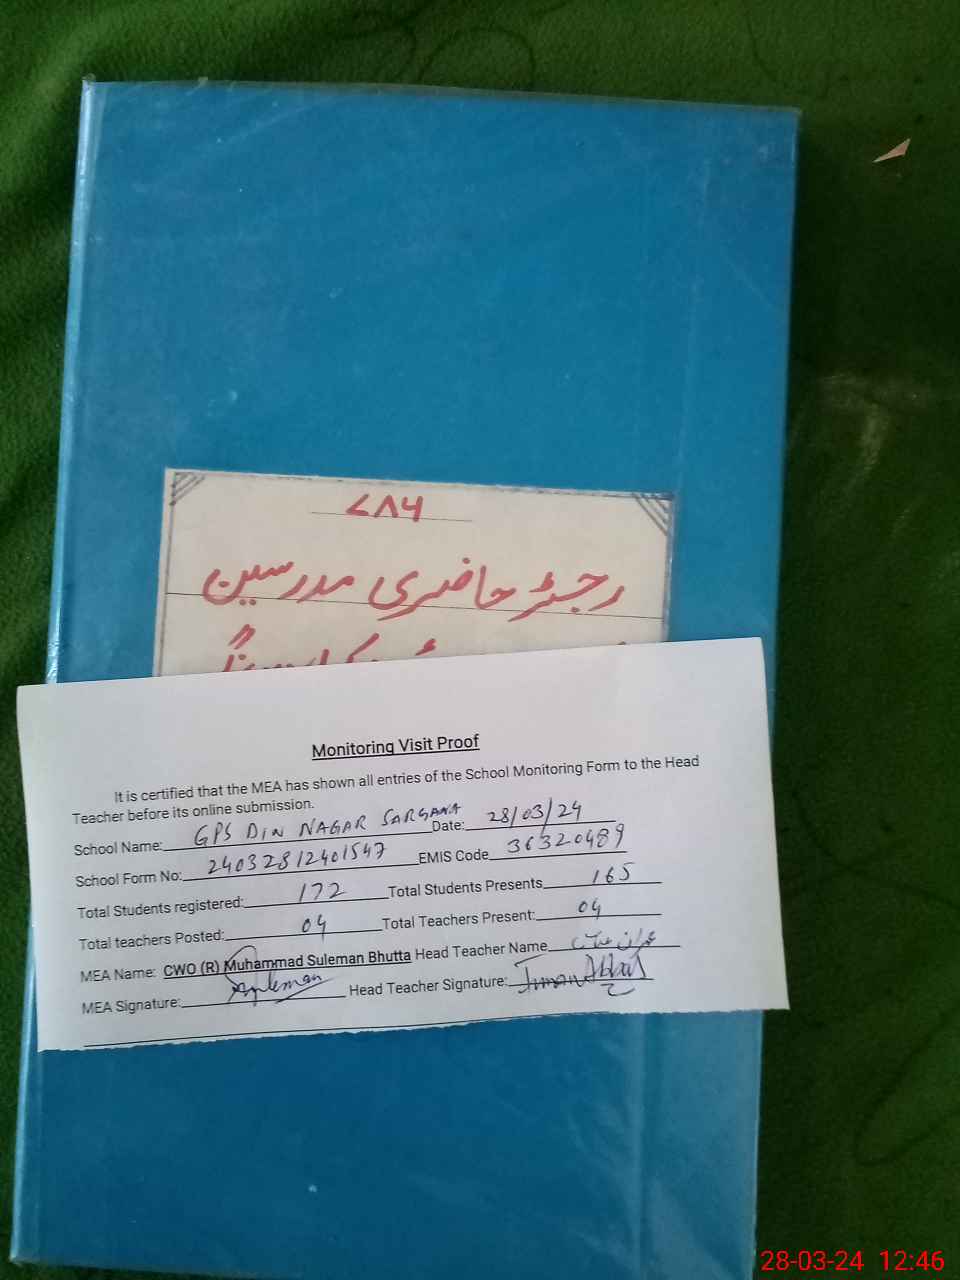 ۷۸۶
رجسٹر حاضری مدرسین
Monitoring Visit Proof
It is certified that the MEA has shown all entries of the School Monitoring Form to the Head
Teacher before its online submission.
School Name: GPS DIN NAGAR SARGANA Date: 28/03/24
School Form No: 24032812401547 EMIS Code 36320489
Total Students registered: 172 Total Students Presents 165
Total teachers Posted: 04 Total Teachers Present: 04
MEA Name: CWO (R) Muhammad Suleman Bhutta Head Teacher Name
MEA Signature: Suleman Head Teacher Signature:
28-03-24 12:46